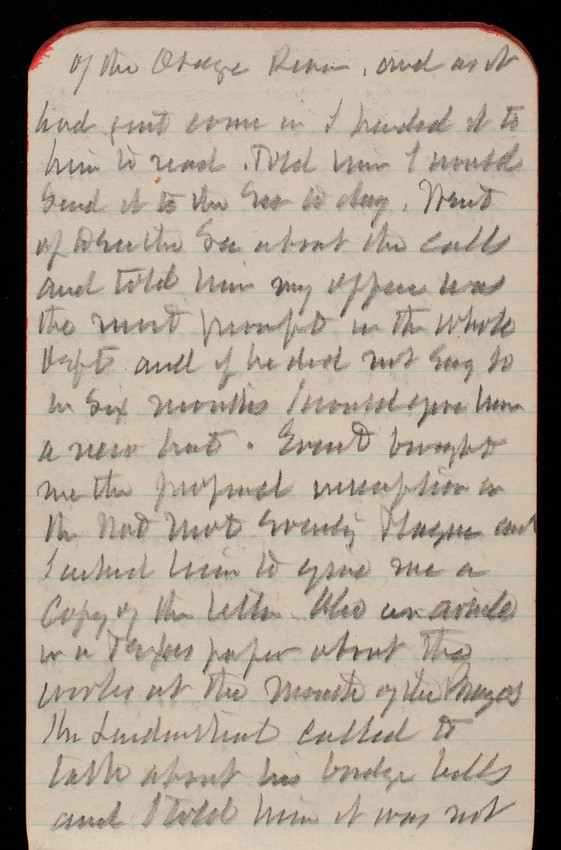 of the Osage River, and as it
had just come in I handed it to
him to read. Told him I would
Send it to the Sec to day. Went
of to see the Sec about the calls
and told him my office was
the most prompt in the whole
Dept and if he did not Say so
in Six months I would give him
a new hat. brought
me the proposed inscription on
the Nat Mot Plaque and
I asked him to give me a
Copy of the letter. Also an article
in a Texas paper about the
works at the mouth of the Brazos
The called to
talk about his bridge bills
and I told him it was not